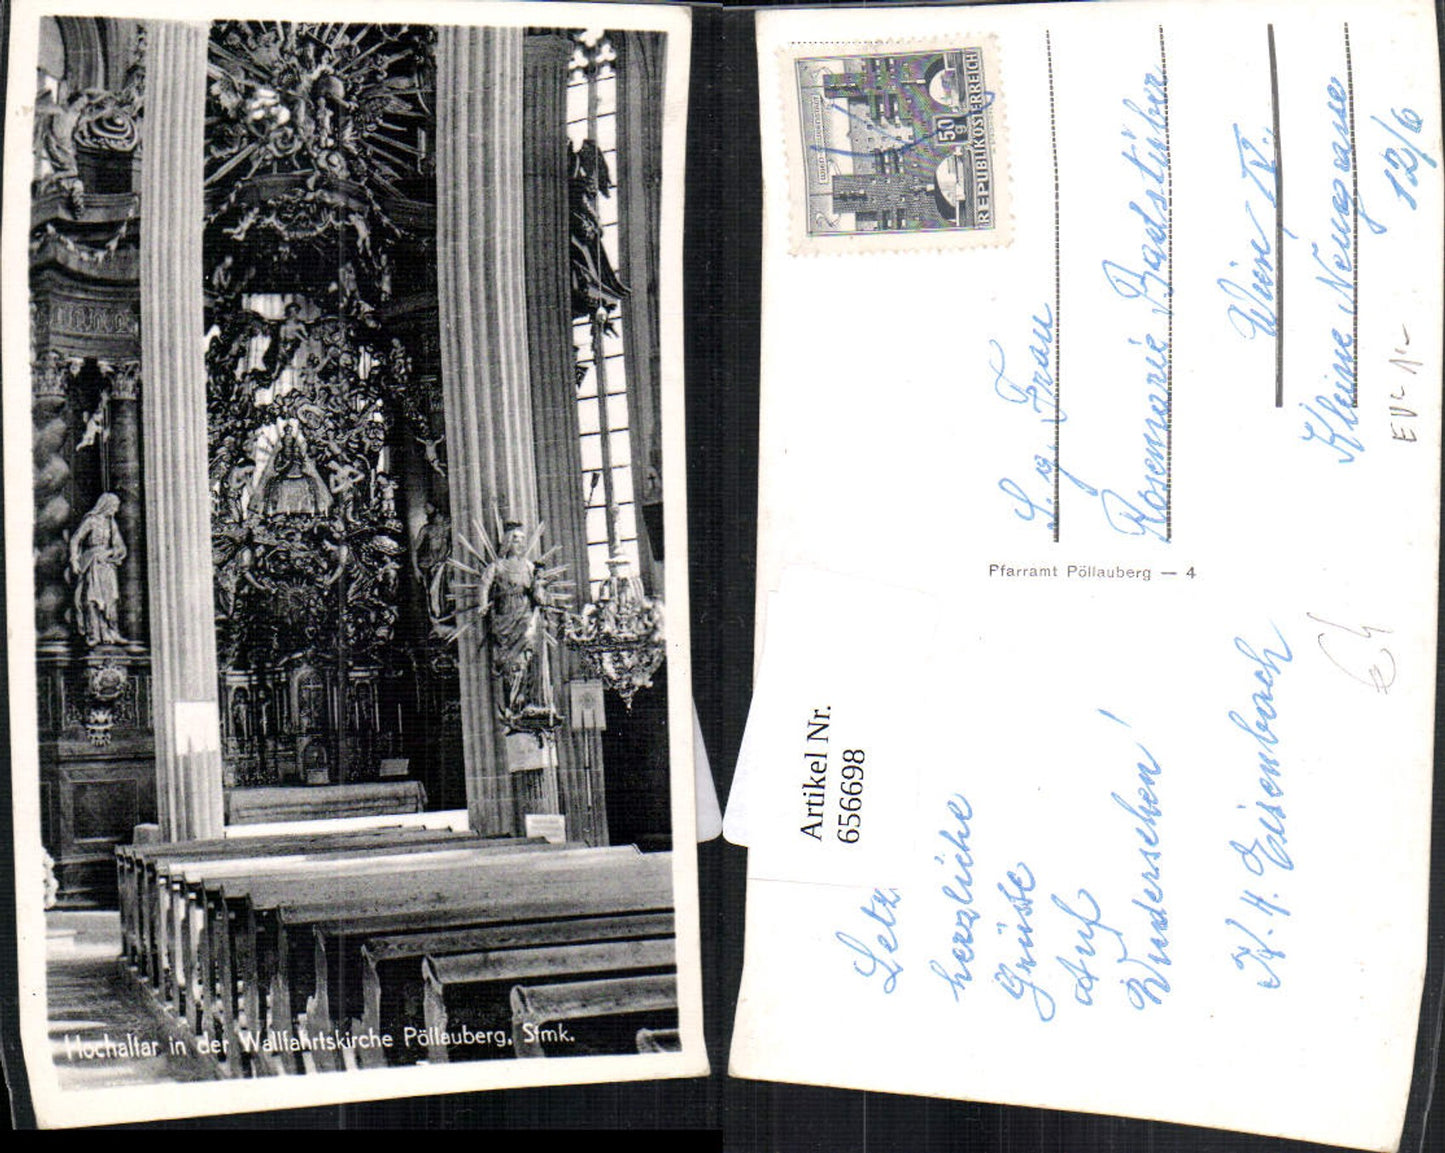 Hochaltar in der Wallfahrtskirche Pöllauberg, Stmk.
50 g
REPUBLIK ÖSTERREICH
S. g. Frau
Rosemarie Badstüber
Wien IV.
Kleine Neugasse
12/6
Pfarramt Pöllauberg — 4
Artikel Nr.
656698
Letz
herzliche
Grüsse
Auf
Wiedersehen!
H. Eisenbach